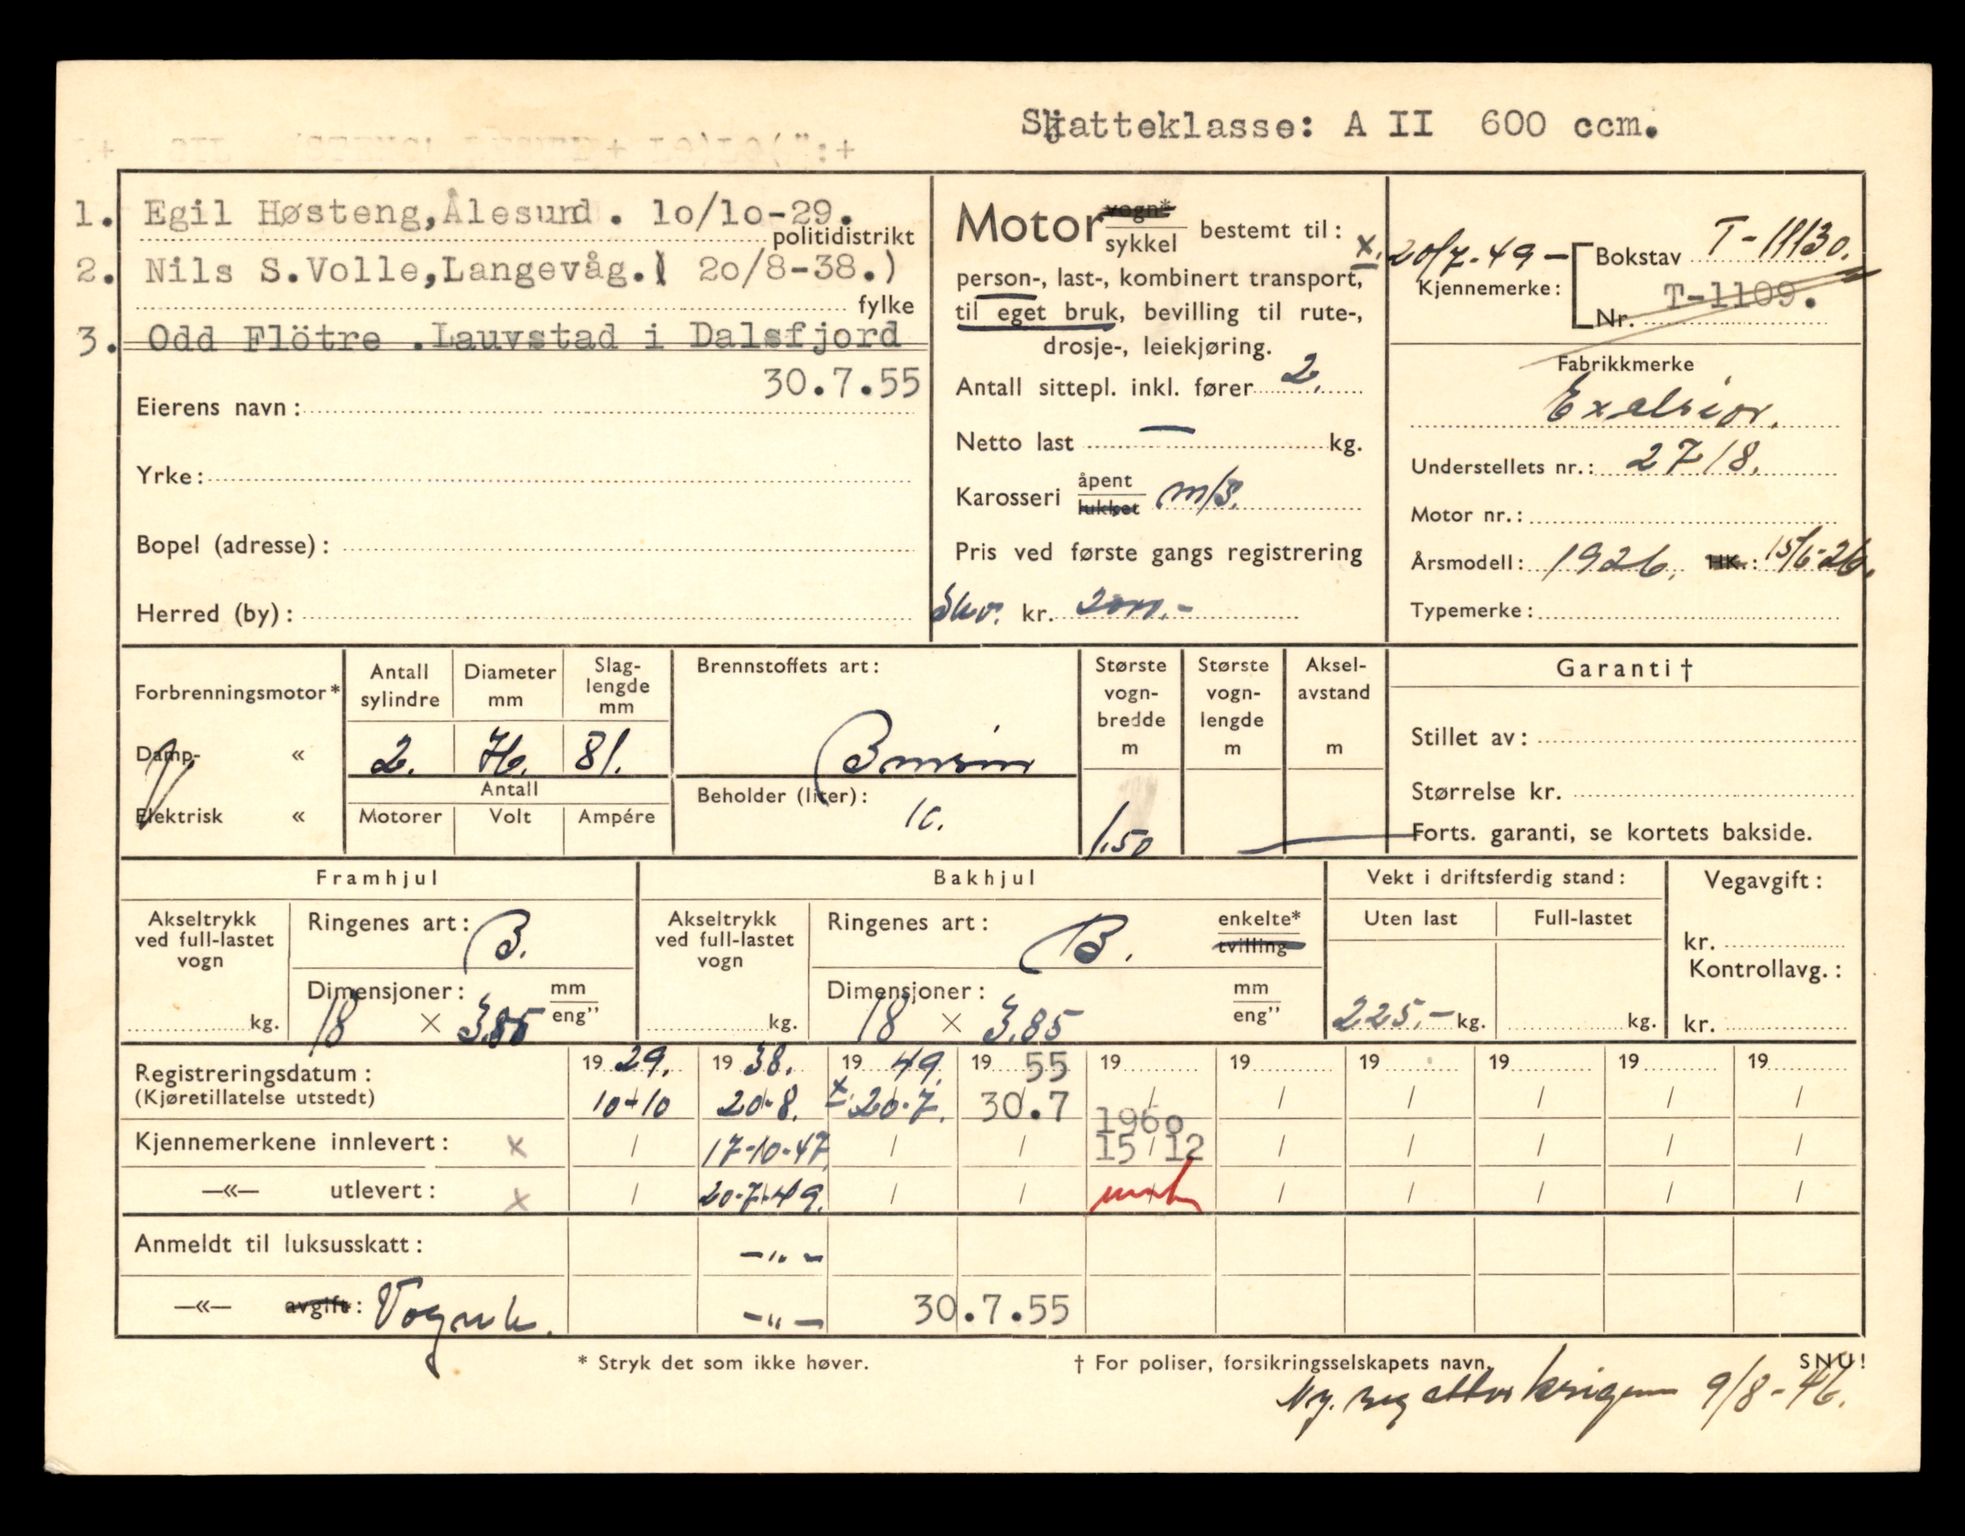 Skatteklasse: A II 600 ccm.
1. Egil Høsteng, Ålesund. 10/10-29.
politidistrikt
2. Nils S. Volle, Langevåg. ( 20/8-38.)
fylke
3. Odd Flötre . Lauvstad i Dalsfjord
30.7.55
Eierens navn:
Yrke:
Bopel (adresse):
Herred (by):
Motor vogn*
sykkel bestemt til:
person-, last-, kombinert transport,
til eget bruk, bevilling til rute-,
drosje-, leiekjøring.
Antall sittepl. inkl. fører 2.
Netto last — kg.
Karosseri åpent
lukket m/s.
Pris ved første gangs registrering
Skv. kr. 2000.-
x. 20/7-49 —
Kjennemerke:
Bokstav T-11130.
Nr. T-1109.
Fabrikkmerke
Exelsior.
Understellets nr.: 2718.
Motor nr.:
Årsmodell: 1926. HK.: 15/6-26.
Typemerke:
Forbrenningsmotor*
Damp- «
Elektrisk «
Antall sylindre
2.
Diameter mm
76.
Slag-lengde mm
81.
Antall
Motorer Volt Ampére
Brennstoffets art:
Bensin
Beholder (liter):
10.
Største vogn-bredde m
1.50
Største vogn-lengde m
Aksel-avstand m
Garanti †
Stillet av:
Størrelse kr.
Forts. garanti, se kortets bakside.
Framhjul
Akseltrykk ved full-lastet vogn
kg.
Ringenes art: B.
Dimensjoner: mm
eng"
18 × 3.85
Bakhjul
Akseltrykk ved full-lastet vogn
kg.
Ringenes art: B. enkelte*
tvilling
Dimensjoner: mm
eng"
18 × 3.85
Vekt i driftsferdig stand:
Uten last Full-lastet
225.- kg. kg.
Vegavgift:
kr.
Kontrollavg.:
kr.
Registreringsdatum: 19 29. 19 38. 19 49. 19 55 19 19 19 19 19 19
(Kjøretillatelse utstedt) 10-10 20-8. x 20-7. 30.7 / / / / / /
1960
Kjennemerkene innlevert: x / 17-10-47. / / 15/12 / / / / /
—«— utlevert: x / 20-7-49. / / / / / / /
Anmeldt til luksusskatt: -"-
—«— avgift: -"- 30.7.55
* Stryk det som ikke høver.
† For poliser, forsikringsselskapets navn.
SNU!
Ny. reg etter krigen 9/8-46.